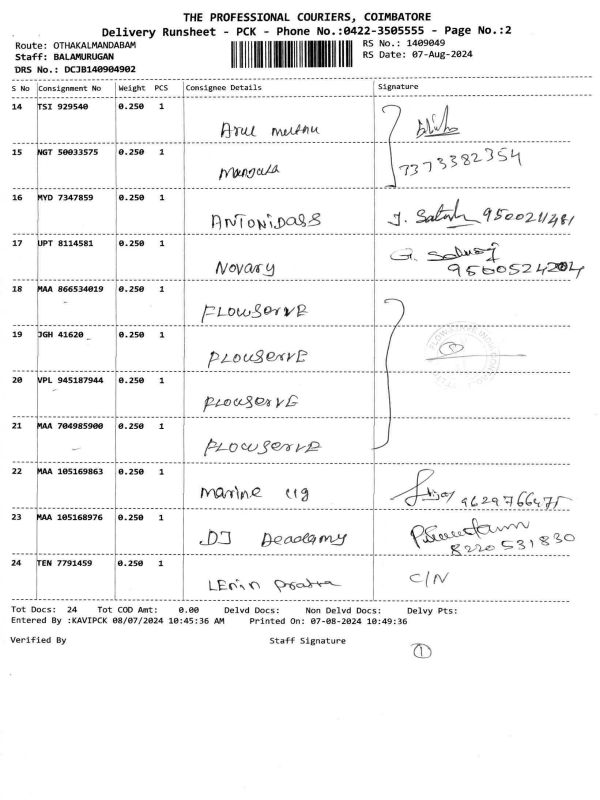 THE PROFESSIONAL COURIERS, COIMBATORE
Delivery Runsheet - PCK - Phone No.:0422-3505555 - Page No.:2
Route: OTHAKALMANDABAM RS No.: 1409049
Staff: BALAMURUGAN RS Date: 07-Aug-2024
DRS No.: DCJB140904902
S No Consignment No Weight PCS Consignee Details Signature
14 TSI 929540 0.250 1
Arul muthu
15 NGT 50033575 0.250 1
7373382354
16 MYD 7347859 0.250 1
ANTONIDASS J. Satish
17 UPT 8114581 0.250 1
Novary G.
9500524204
18 MAA 866534019 0.250 1
FLOWSERVE
19 JGH 41620 0.250 1
FLOWSERVE
20 VPL 945187944 0.250 1
FLOWSERVE
21 MAA 704985900 0.250 1
FLOWSERVE
22 MAA 105169863 0.250 1
marine 9629766475
23 MAA 105168976 0.250 1
DJ
8220531830
24 TEN 7791459 0.250 1
Lenin C/N
Tot Docs: 24 Tot COD Amt: 0.00 Delvd Docs: Non Delvd Docs: Delvy Pts:
Entered By :KAVIPCK 08/07/2024 10:45:36 AM Printed On: 07-08-2024 10:49:36
Verified By Staff Signature
1